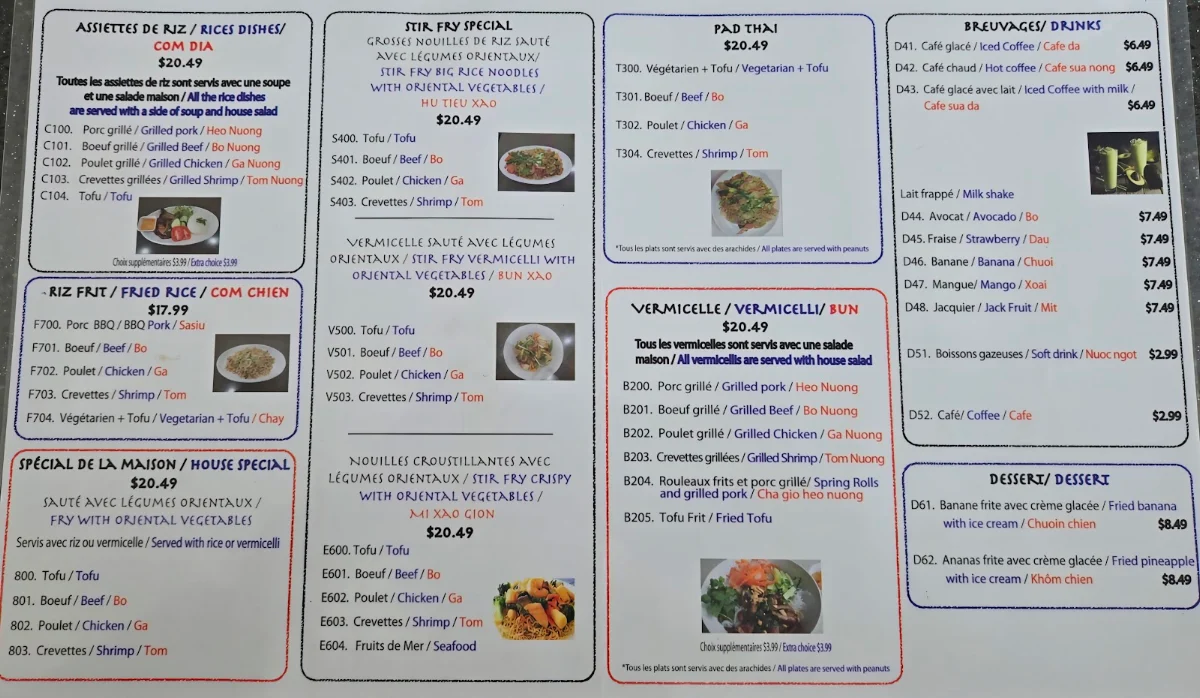 ASSIETTES DE RIZ / RICES DISHES/
COM DIA
$20.49
Toutes les assiettes de riz sont servis avec une soupe
et une salade maison / All the rice dishes
are served with a side of soup and house salad
C100. Porc grillé / Grilled pork / Heo Nuong
C101. Boeuf grillé / Grilled Beef / Bo Nuong
C102. Poulet grillé / Grilled Chicken / Ga Nuong
C103. Crevettes grillées / Grilled Shrimp / Tom Nuong
C104. Tofu / Tofu
Choix supplémentaires $3.99 / Extra choice $3.99
RIZ FRIT / FRIED RICE / COM CHIEN
$17.99
F700. Porc BBQ / BBQ Pork / Sasiu
F701. Boeuf / Beef / Bo
F702. Poulet / Chicken / Ga
F703. Crevettes / Shrimp / Tom
F704. Végétarien + Tofu / Vegetarian + Tofu / Chay
SPÉCIAL DE LA MAISON / HOUSE SPECIAL
$20.49
SAUTÉ AVEC LÉGUMES ORIENTAUX /
FRY WITH ORIENTAL VEGETABLES
Servis avec riz ou vermicelle / Served with rice or vermicelli
800. Tofu / Tofu
801. Boeuf / Beef / Bo
802. Poulet / Chicken / Ga
803. Crevettes / Shrimp / Tom
STIR FRY SPECIAL
GROSSES NOUILLES DE RIZ SAUTÉ
AVEC LÉGUMES ORIENTAUX/
STIR FRY BIG RICE NOODLES
WITH ORIENTAL VEGETABLES /
HU TIEU XAO
$20.49
S400. Tofu / Tofu
S401. Boeuf / Beef / Bo
S402. Poulet / Chicken / Ga
S403. Crevettes / Shrimp / Tom
VERMICELLE SAUTÉ AVEC LÉGUMES
ORIENTAUX / STIR FRY VERMICELLI WITH
ORIENTAL VEGETABLES / BUN XAO
$20.49
V500. Tofu / Tofu
V501. Boeuf / Beef / Bo
V502. Poulet / Chicken / Ga
V503. Crevettes / Shrimp / Tom
NOUILLES CROUSTILLANTES AVEC
LÉGUMES ORIENTAUX / STIR FRY CRISPY
WITH ORIENTAL VEGETABLES /
MI XAO GION
$20.49
E600. Tofu / Tofu
E601. Boeuf / Beef / Bo
E602. Poulet / Chicken / Ga
E603. Crevettes / Shrimp / Tom
E604. Fruits de Mer / Seafood
PAD THAI
$20.49
T300. Végétarien + Tofu / Vegetarian + Tofu
T301. Boeuf / Beef / Bo
T302. Poulet / Chicken / Ga
T304. Crevettes / Shrimp / Tom
*Tous les plats sont servis avec des arachides / All plates are served with peanuts
VERMICELLE / VERMICELLI/ BUN
$20.49
Tous les vermicelles sont servis avec une salade
maison / All vermicellis are served with house salad
B200. Porc grillé / Grilled pork / Heo Nuong
B201. Boeuf grillé / Grilled Beef / Bo Nuong
B202. Poulet grillé / Grilled Chicken / Ga Nuong
B203. Crevettes grillées / Grilled Shrimp / Tom Nuong
B204. Rouleaux frits et porc grillé/ Spring Rolls
and grilled pork / Cha gio heo nuong
B205. Tofu Frit / Fried Tofu
Choix supplémentaires $3.99 / Extra choice $3.99
*Tous les plats sont servis avec des arachides / All plates are served with peanuts
BREUVAGES/ DRINKS
D41. Café glacé / Iced Coffee / Cafe da $6.49
D42. Café chaud / Hot coffee / Cafe sua nong $6.49
D43. Café glacé avec lait / Iced Coffee with milk /
Cafe sua da $6.49
Lait frappé / Milk shake
D44. Avocat / Avocado / Bo $7.49
D45. Fraise / Strawberry / Dau $7.49
D46. Banane / Banana / Chuoi $7.49
D47. Mangue/ Mango / Xoai $7.49
D48. Jacquier / Jack Fruit / Mit $7.49
D51. Boissons gazeuses / Soft drink / Nuoc ngot $2.99
D52. Café/ Coffee / Cafe $2.99
DESSERT/ DESSERT
D61. Banane frite avec crème glacée / Fried banana
with ice cream / Chuoin chien $8.49
D62. Ananas frite avec crème glacée / Fried pineapple
with ice cream / Khôm chien $8.49